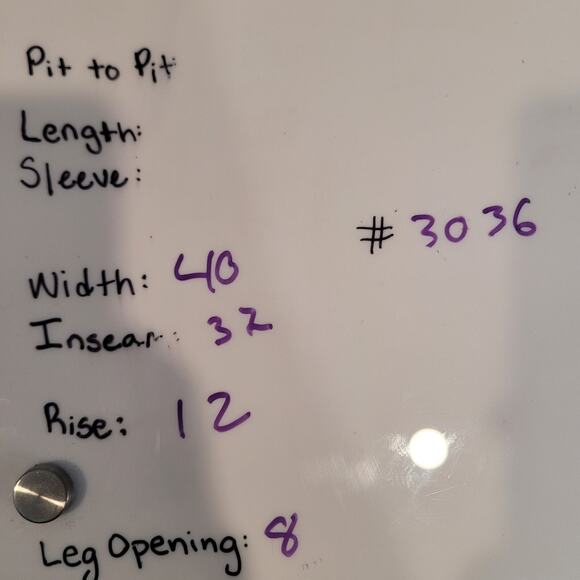 Pit to Pit
Length:
Sleeve:
# 3036
Width: 40
Insear: 32
Rise: 12
Leg Opening: 8